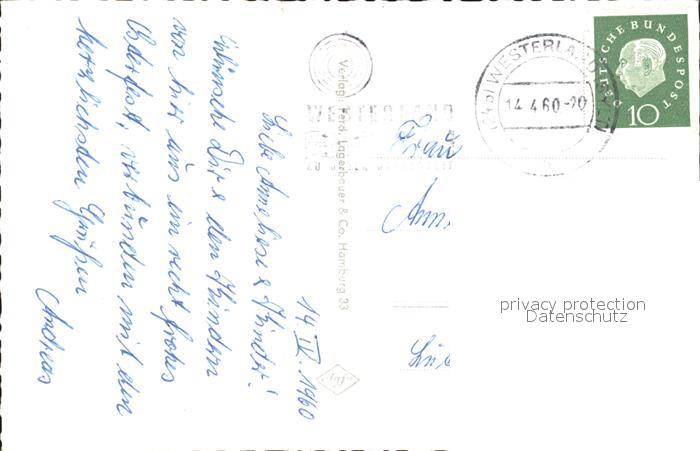 14. IV. 1960
Liebe Anneliese & Kinder!
Wünsche Dir & den Kindern
von hier aus ein recht frohes
Osterfest, verbunden mit den
herzlichsten Grüßen
Andreas
Verlag: Ferd. Lagerbauer & Co. Hamburg 33
Agfa
WESTERLAND
WESTERLAND
14.4.60-20
DEUTSCHE BUNDESPOST
10
Frau
Ann
privacy protection
Datenschutz